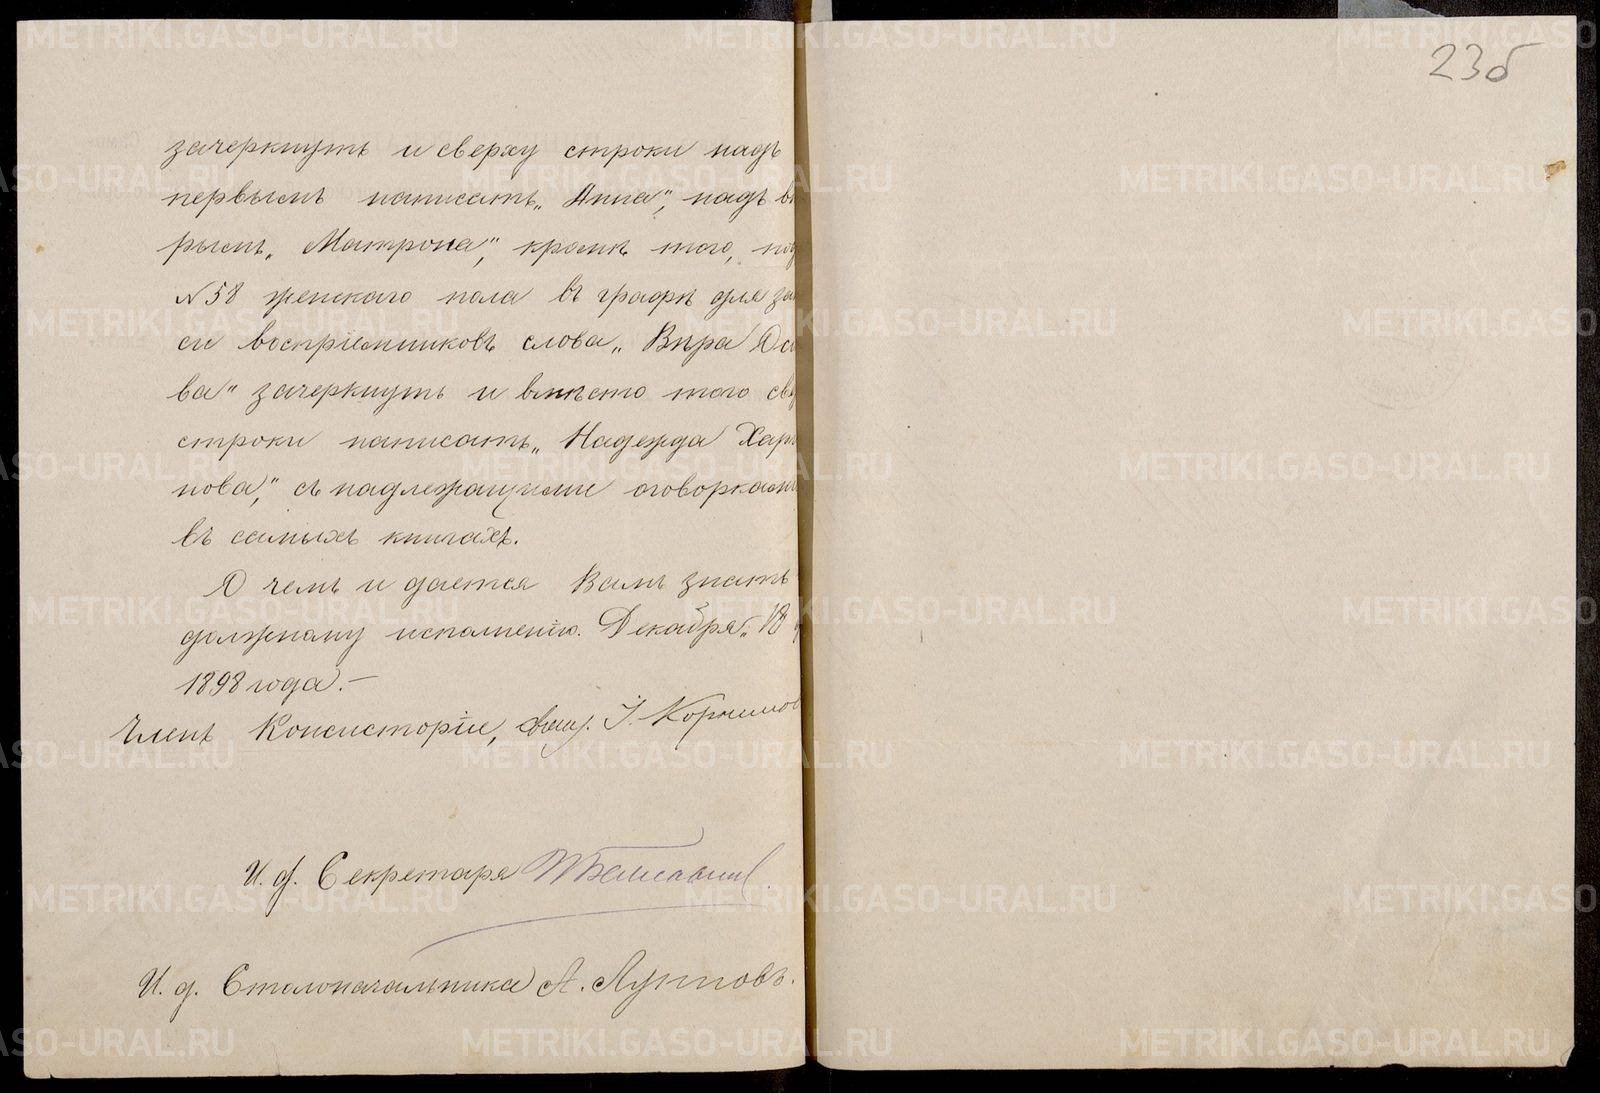 236
зачеркнуть и сверху строки надъ
первымъ написать „Анна“, надъ в
рымъ „Матрона“, кромѣ того, под
№ 58 женскаго пола въ графѣ для за
си воспріемниковъ слова „Вѣра Ос
ва“ зачеркнуть и вмѣсто того све
строки написать „Надежда Хари
нова“, съ надлежащими оговорками
въ самыхъ книгахъ.
О чемъ и дается Вамъ знать
должному исполненію. Декабря „18
1898 года.—
Членъ Консисторіи, Свящ. І. Корнилов
И. д. Секретаря
И. д. Столоначальника А. Лутовъ.
METRIKI.GASO-URAL.RU